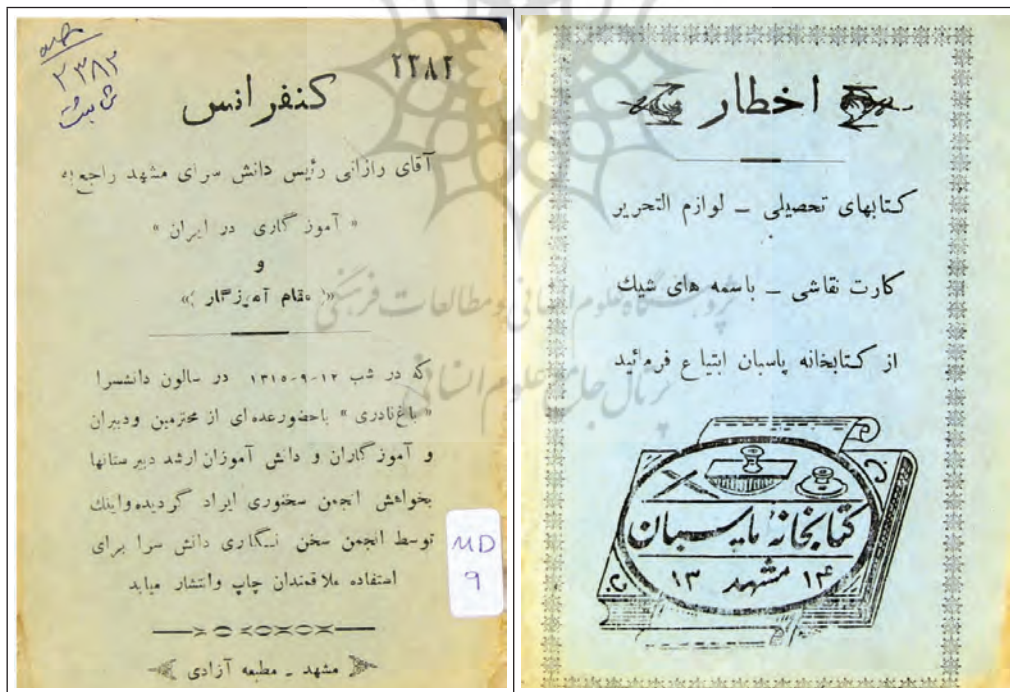 اخطار
کتابهای تحصیلی ـ لوازم التحریر
کارت نقاشی ـ باسمه های شیك
از کتابخانه پاسبان ابتیاع فرمائید
کتابخانه پاسبان
۱۳ مشهد ۱۴
۲۳۸۲
۲۳۸۲
ثبت
کنفرانس
آقای رازانی رئیس دانش سرای مشهد راجع به
« آموزگاری در ایران »
و
«( مقام آموزگار )»
که در شب ۱۲-۹-۱۳۱۵ در سالون دانشسرا
« باغ نادری » باحضور عده ای از محترمین ودبیران
و آموزگاران و دانش آموزان ارشد دبیرستانها
بخواهش انجمن سخنوری ایراد گردیده واینك
توسط انجمن سخن نگاری دانش سرا برای
استفاده علاقمندان چاپ وانتشار میابد
مشهد ـ مطبعه آزادی
MD
9
پژوهشگاه علوم انسانی و مطالعات فرهنگی
پرتال جامع علوم انسانی